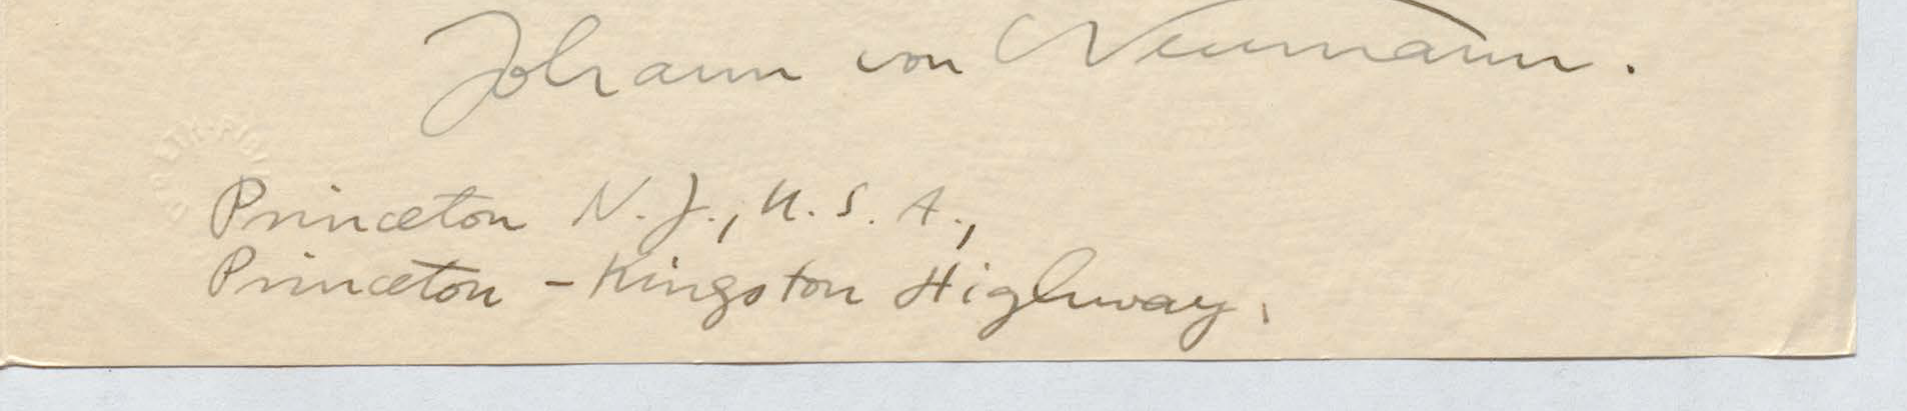 Johann von Neumann.
Princeton N. J., U. S. A.,
Princeton - Kingston Highway.